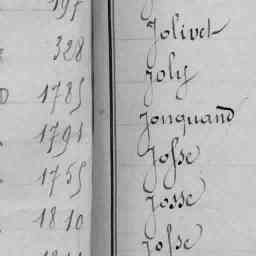 195
Jolivet
328
Joly
1785
Jonquand
1791
Josse
1755
Josse
1810
Josse